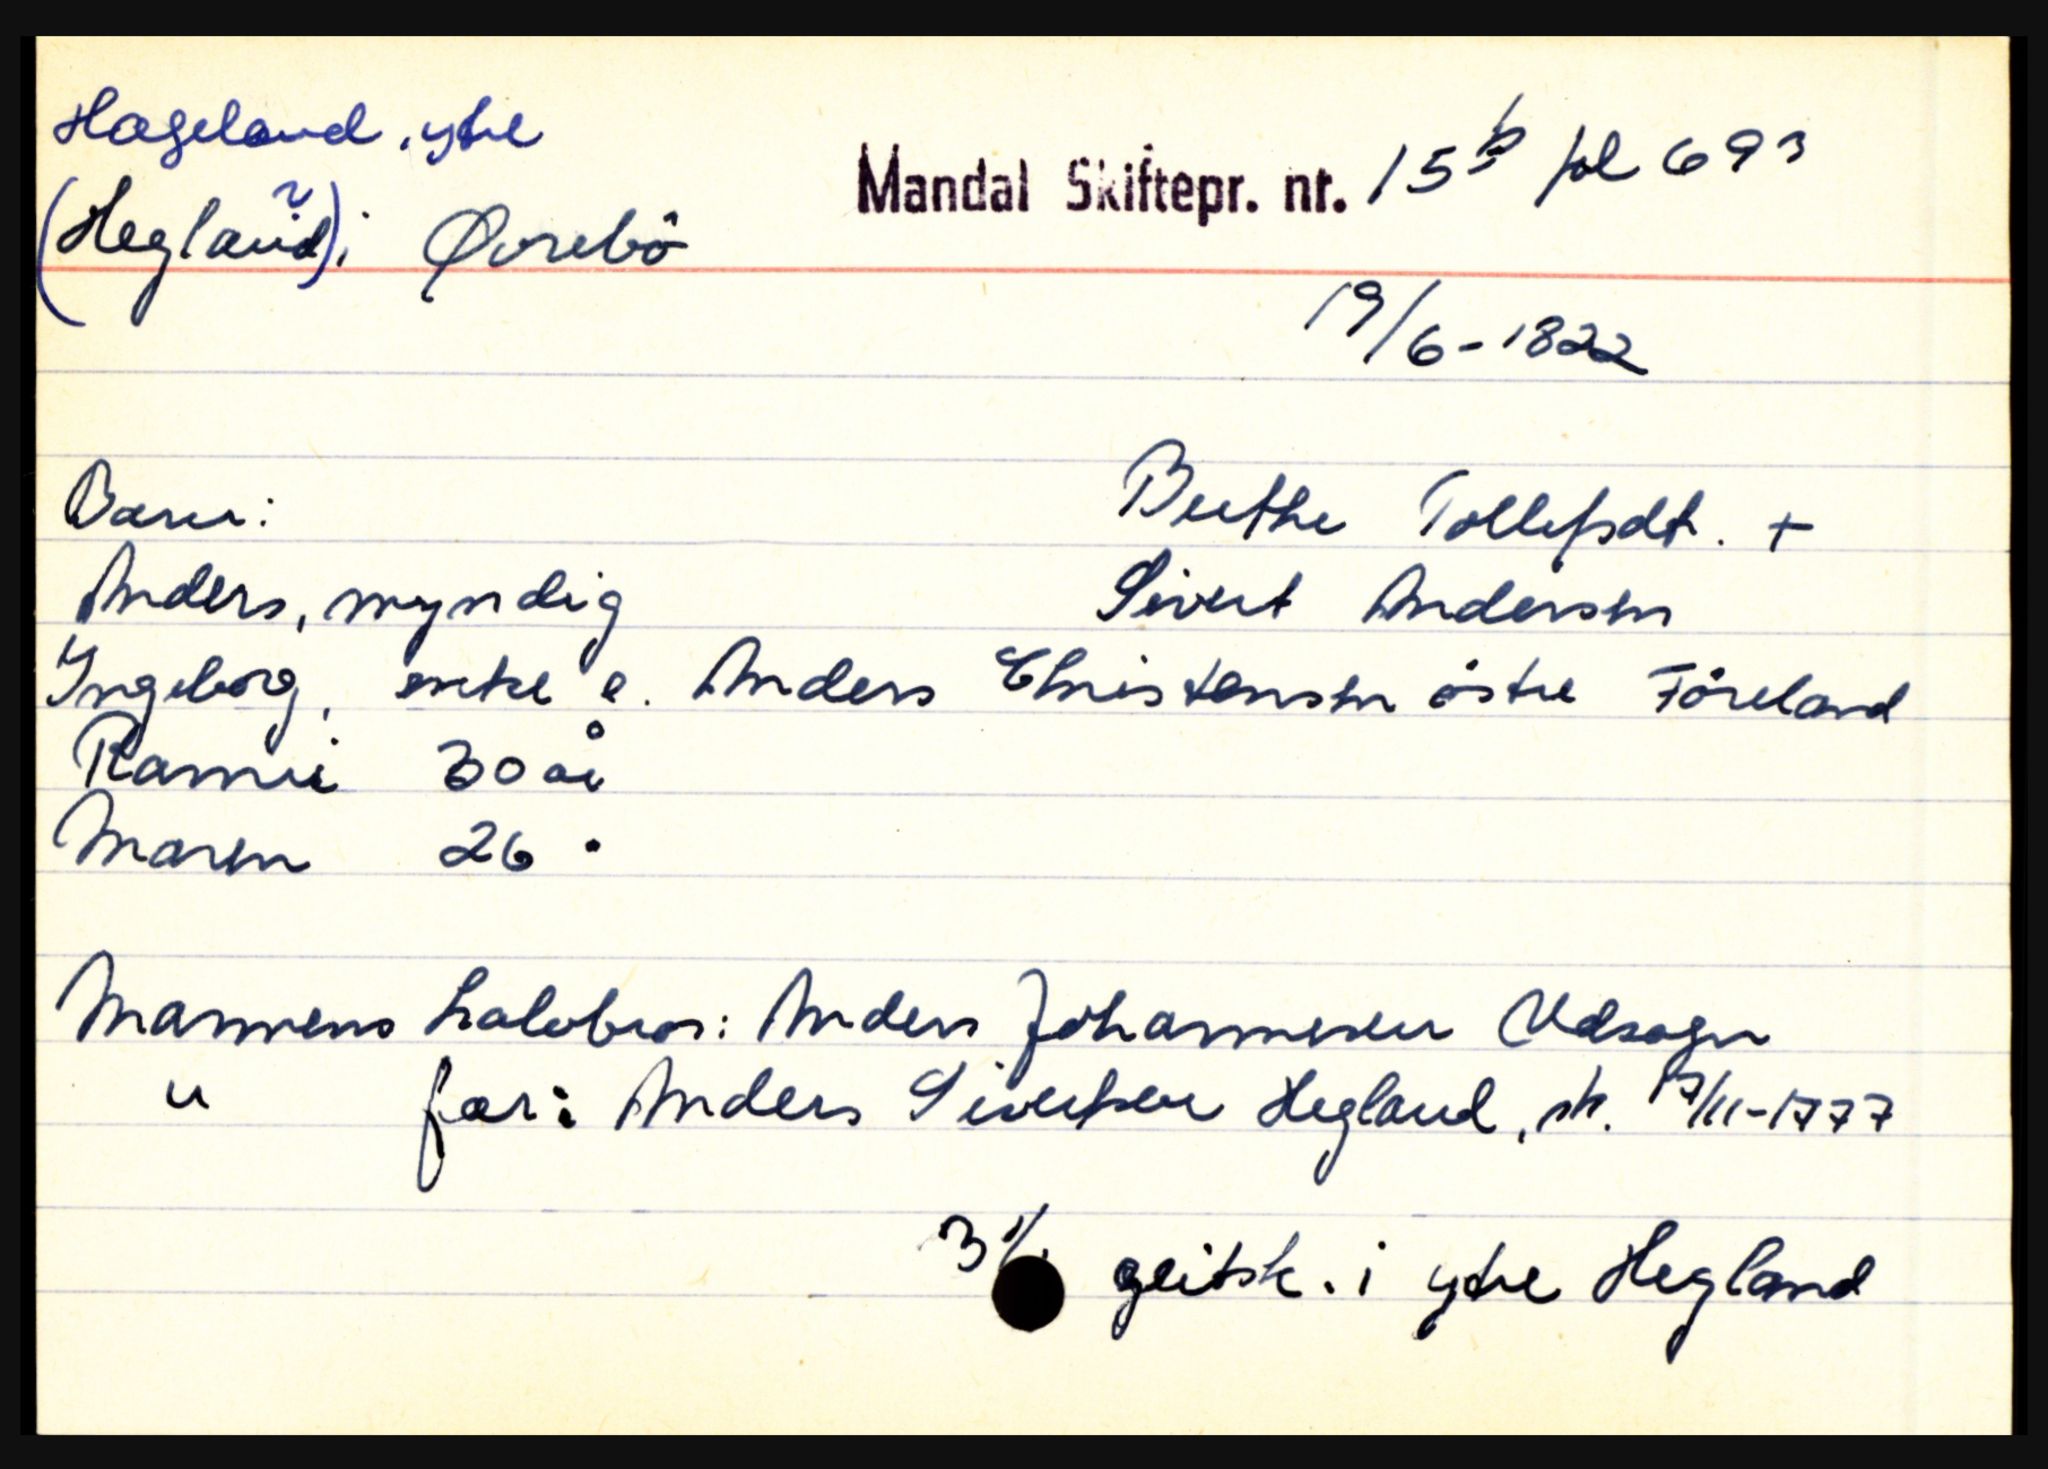 Hageland, ytre
(Hegland) i Øvrebö
Mandal Skiftepr. nr. 15b fol 693
19/6-1822
Barn:
Berthe Tollefsdt. +
Anders, myndig
Sivert Andersen
Ingeborg, enke e. Anders Christensen östre Föreland
Rannei 30 år
Maren 26 "
Mannens halvbror: Anders Johannesen Udsogn
" far: Anders Sivertsen Hegland, sk. /11-1777
3 geitsk. i ytre Hegland